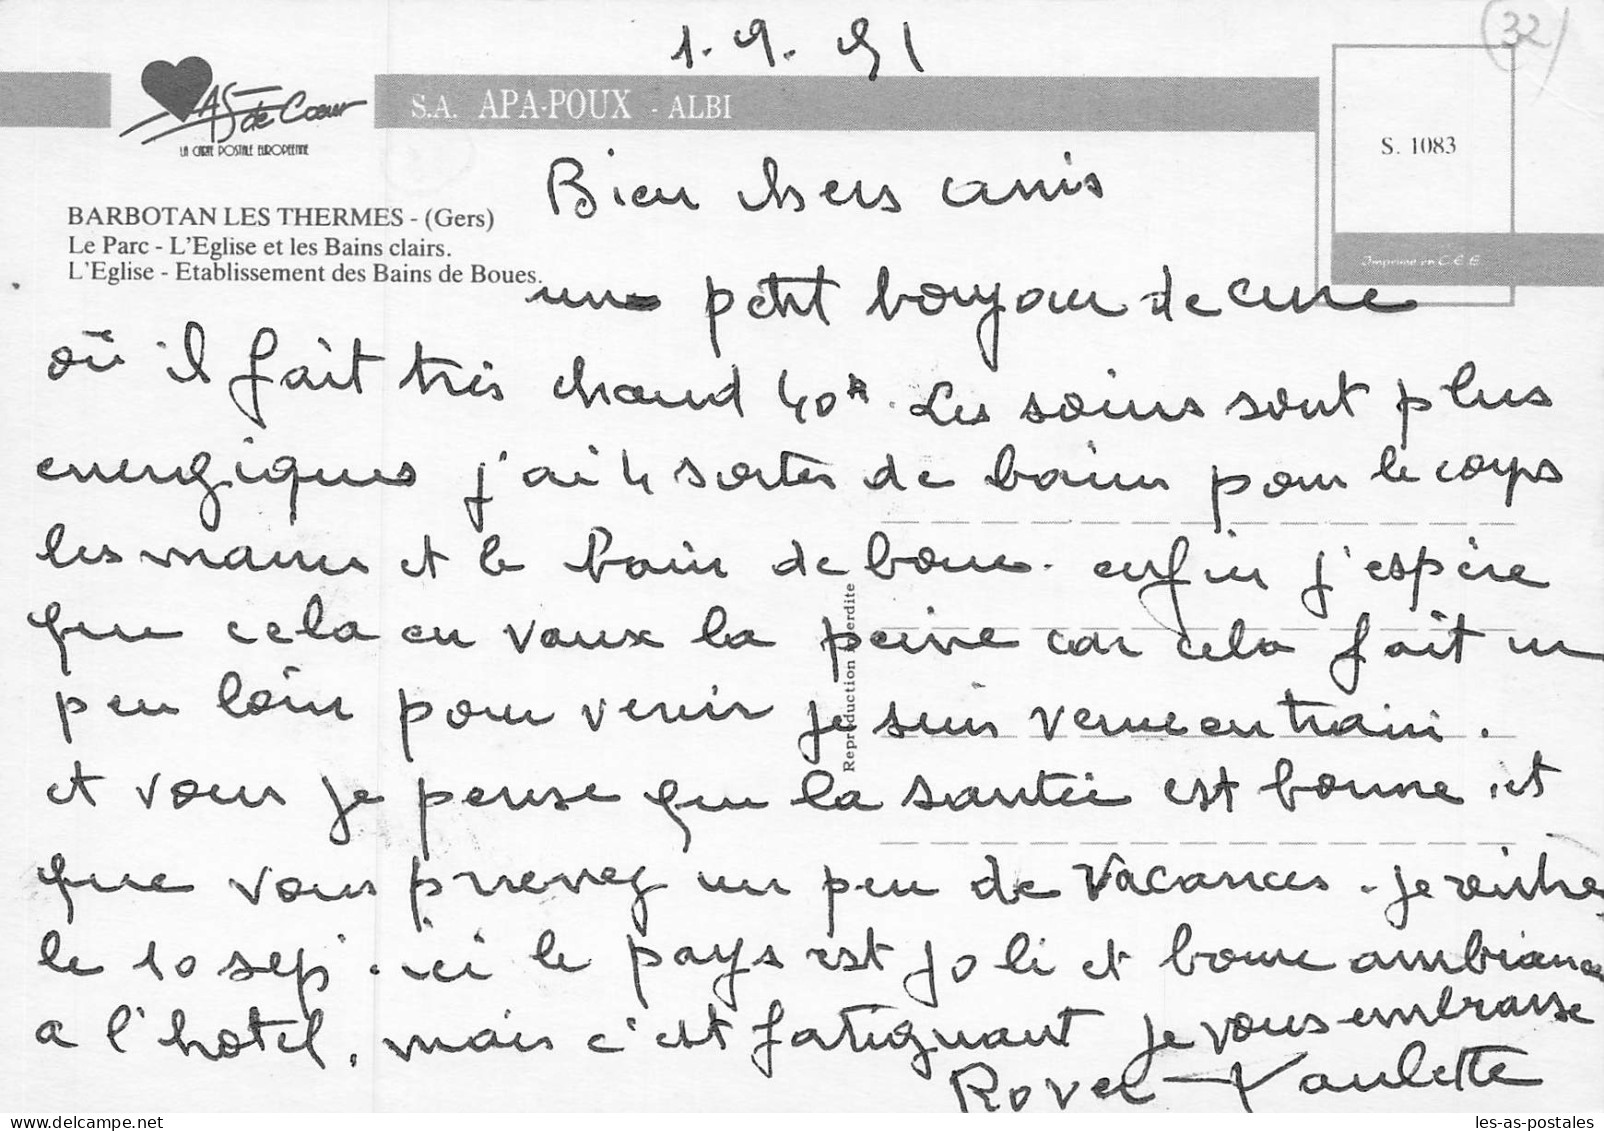 (32)
1.9.91
AS de Coeur
LA CARTE POSTALE EUROPEENNE
S.A. APA-POUX - ALBI
S. 1083
Imprimé en C.E.E.
BARBOTAN LES THERMES - (Gers)
Le Parc - L'Eglise et les Bains clairs.
L'Eglise - Etablissement des Bains de Boues.
Reproduction interdite
Bien chers amis
un petit bonjour de cure
où il fait très chaud 40°. Les soins sont plus
energiques j'ai 4 sortes de bains pour le corps
les mains et le bain de boue. enfin j'espère
que cela en vaux la peine car cela fait un
peu loin pour venir je suis venue en train.
et vous je pense que la santée est bonne. et
que vous prenez un peu de vacances. je rentre
le 10 sep. ici le pays est joli et bonne ambiance
a l'hotel. mais c'est fatiguant je vous embrasse
Paulette
les-as-postales